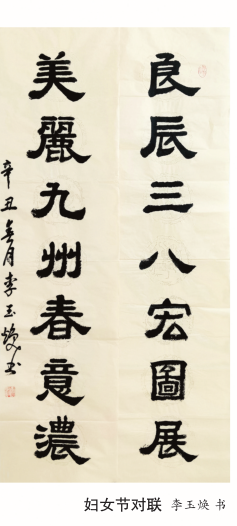 良辰三八宏圖展
美麗九州春意濃
辛丑春月李玉焕书
妇女节对联 李玉焕 书